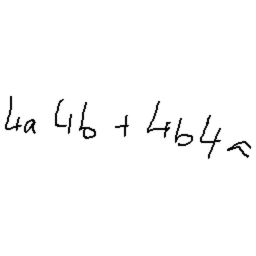 4a 4b + 4b4a